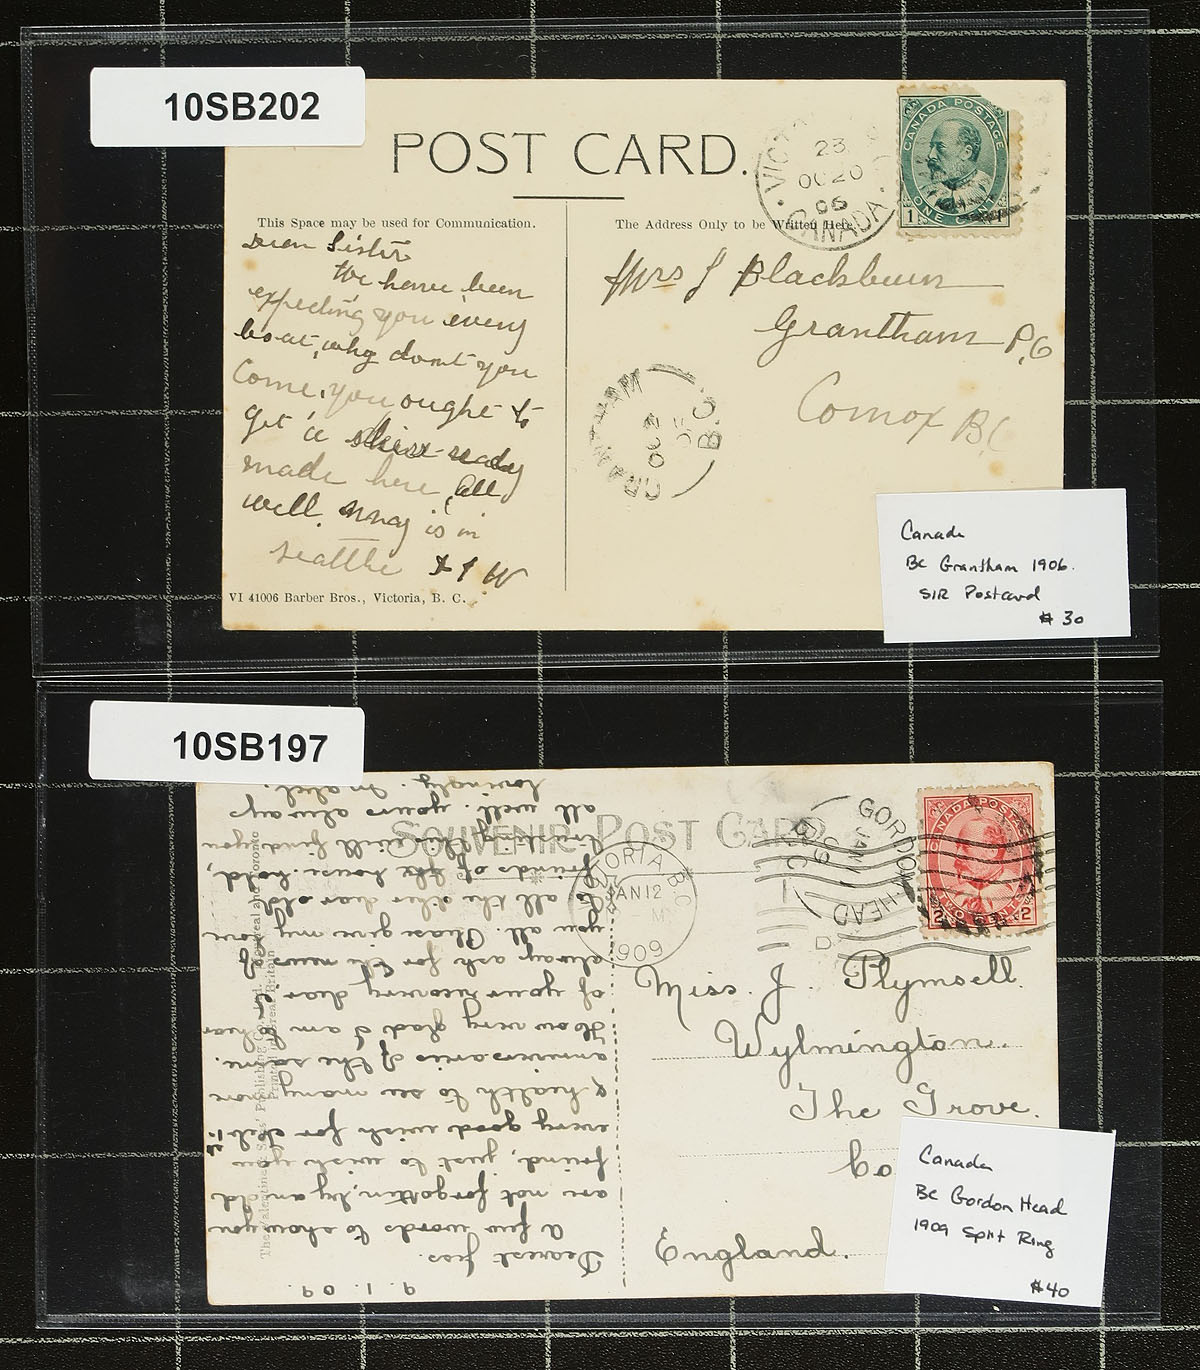 10SB202
POST CARD.
VICT
23
OC 20
06
CANADA
CANADA POSTAGE
1
ONE CENT
This Space may be used for Communication.
The Address Only to be Written Here.
Dear Sister
We have been
expecting you every
boat, why dont you
Come, you ought to
get a skirt ready
made here, All
well. May is in
Seattle
Mrs J Blackburn
Grantham P.O
Comox B.C
GRANTHAM
B.C.
VI 41006 Barber Bros., Victoria, B. C.
Canada
BC Grantham 1906.
S/R Postcard
# 30
10SB197
SOUVENIR POST CARD
VICTORIA B.C.
JAN 12
1909
GORDON HEAD
JAN 11
09
B.C.
CANADA POSTAGE
2 TWO CENTS 2
9. 1. 09.
Dearest
A few words to show you
are not forgotten, by an old
friend, just to wish you
every good wish for
& health to see many more
anniversaries of the same.
How very glad I am to hear
of your recovery dear
always ask for the news of
you all. Please give my love
to all the other dear old
friends of the house-hold,
trusting this will find you
all well. yours always
lovingly.
The Valentine & Sons' Publishing Co., Ltd., Montreal and Toronto
Printed in Great Britain
Miss. J. Plymsell.
Wylmington.
The Grove.
Co
England.
Canada
BC Gordon Head
1909 Split Ring
#40